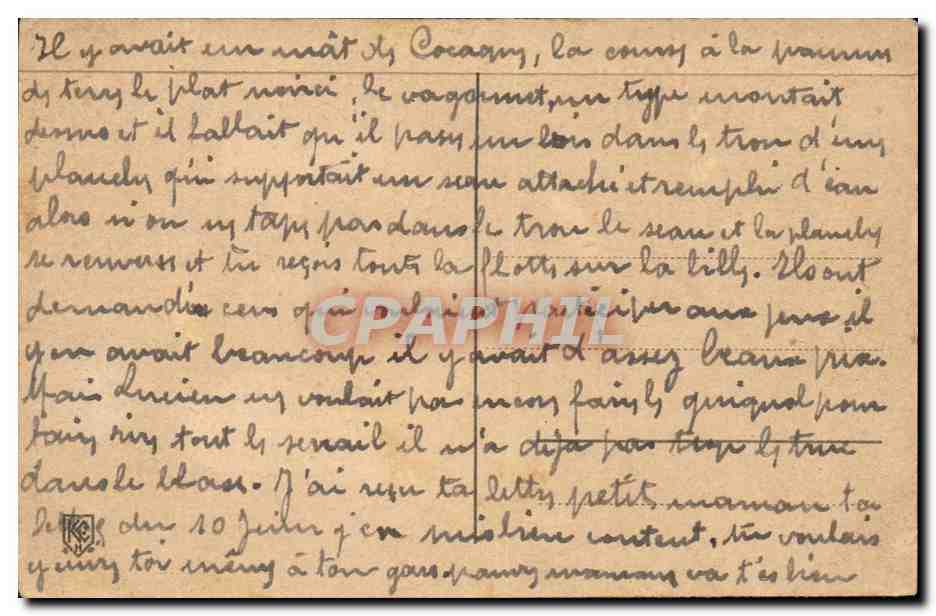 Il y avait un mât de Cocagne, la course à la pomme
de terre le plat noirci, le vagonnet, un type montait
dessus et il fallait qu'il passe un bois dans le trou d'une
planche qui supportait un seau attaché et rempli d'eau
alors si on ne tape pas dans le trou le seau et la planche
se renverse et tu reçois toute la flotte sur la bille. Ils ont
demandé ceux qui participer aux jeux, il
y en avait beaucoup il y avait d'assez beaux prix.
Mais Lucien ne voulait pas encore faire le guignol pour
faire rire tout le il n'a déja pas trop le truc
dans le blase. J'ai reçu ta lettre petite maman ta
lettre du 10 Juin j'en suis bien content, tu voulais
y toi même à ton gars pauvre maman va t'es bien
CPAPHIL